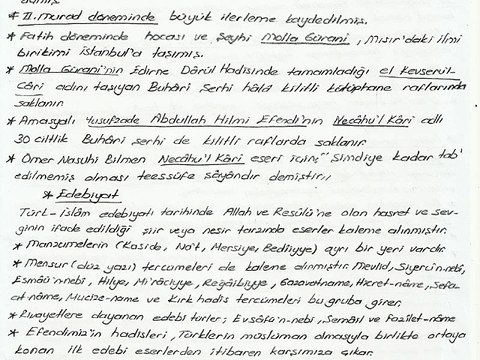 * II. Murad döneminde büyük ilerleme kaydedilmiş.
* Fatih döneminde hocası ve Şeyhi Molla Gürani, Mısır'daki ilmi
birikimi İstanbul'a taşımış.
* Molla Gürani'nin Edirne Dârül Hadisinde tamamladığı el Kevserul-
Câri adını taşıyan Buhâri Şerhi hâlâ kilitli kütüphane raflarında
saklanır
* Amasyalı Yusufzade Abdullah Hilmi Efendi'nin Necâhu'l Kâri adlı
30 ciltlik Buhâri şerhi de kilitli raflarda saklanır.
* Ömer Nasuhi Bilmen Necâhu'l Kâri eseri için; "Şimdiye kadar tab'
edilmemiş olması teessüfe şâyândır demiştir."
* Edebiyat
Türk-İslâm edebiyatı tarihinde Allah ve Resûlü'ne olan hasret ve sev-
ginin ifade edildiği şiir veya nesir tarzında eserler kaleme alınmıştır.
* Manzumelerin (Kaside, Na't, Mersiye, Bediiyye) ayrı bir yeri vardır.
* Mensur (düz yazı) tercümeleri de kaleme alınmıştır. Mevlid, Siyerü'n-nebi,
Esmâü'n-nebi, Hilye, Mi'râciyye, Regâibiyye, Gazavatname, Hicret-nâme, Şefa-
at-nâme, Mucize-name ve Kırk hadis tercümeleri bu gruba girer.
* Rivayetlere dayanan edebi türler; Evsâfü'n-nebi, Şemâil ve Fazîlet-nâme
* Efendimiz'in hadisleri, Türklerin müslüman olmasıyla birlikte ortaya
konan ilk edebi eserlerden itibaren karşımıza çıkar.